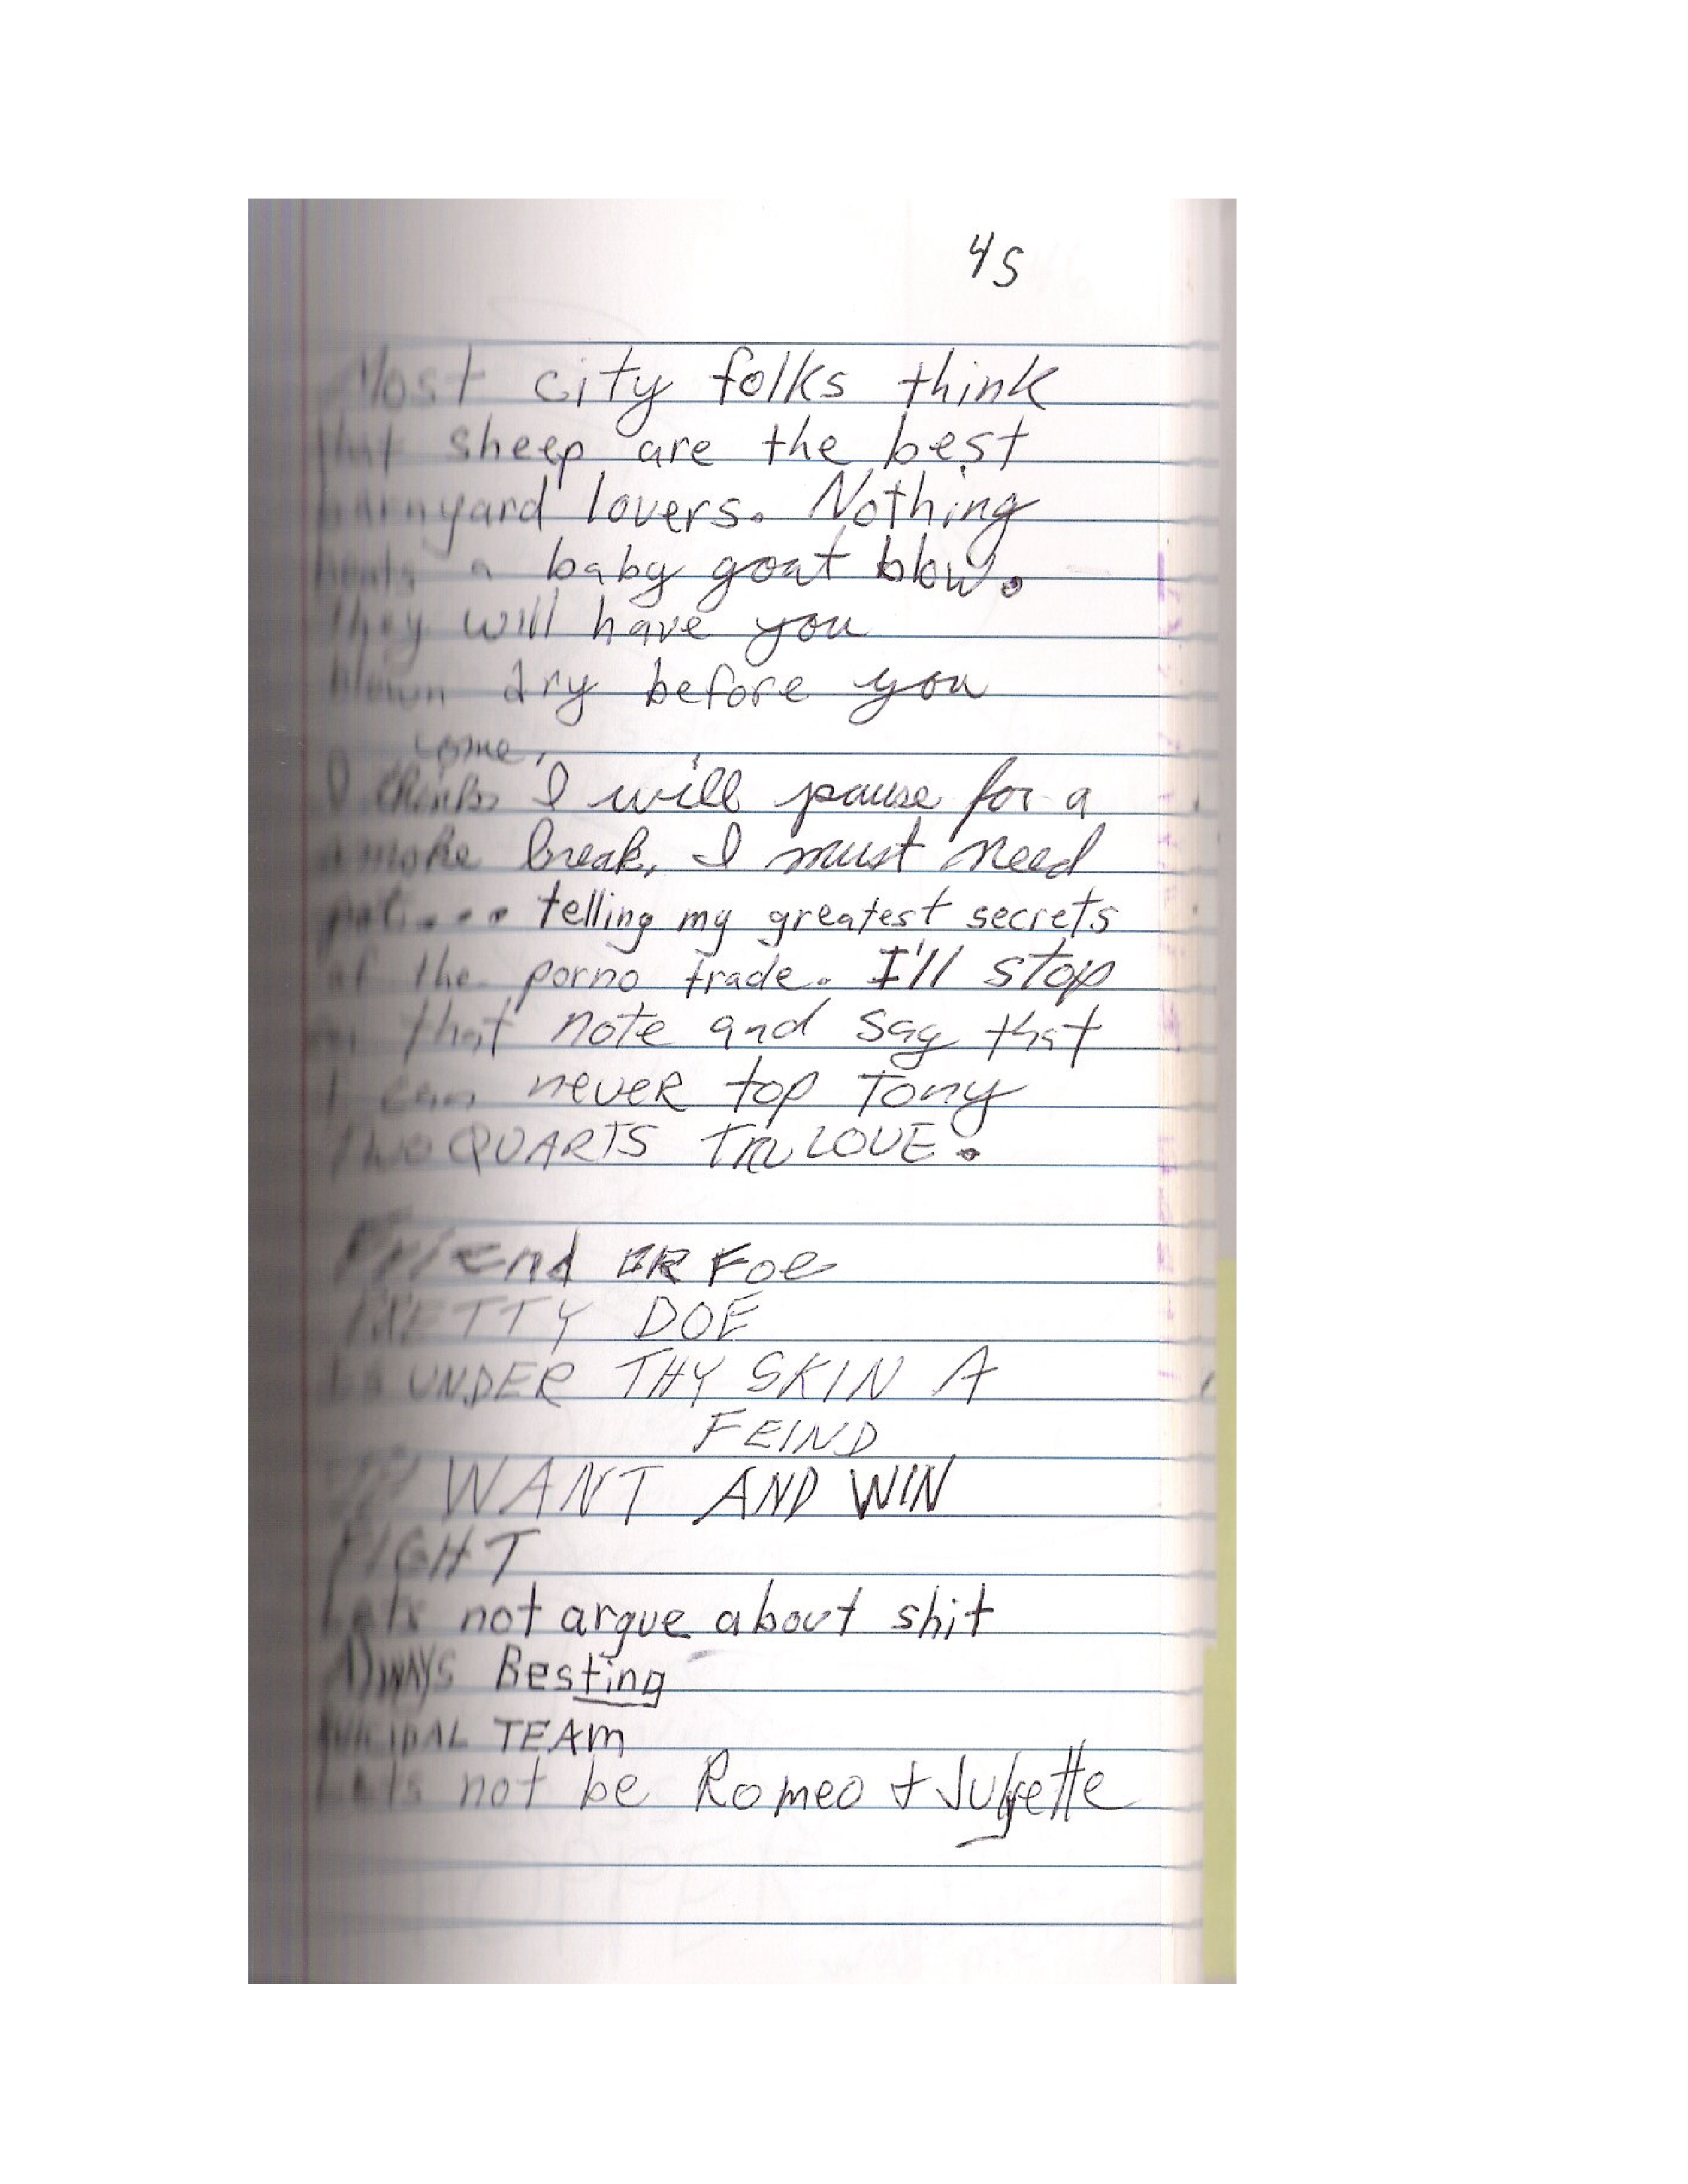 45
Most city folks think
that sheep are the best
barnyard lovers. Nothing
beats a baby goat blow.
They will have you
blown dry before you
come,
I think I will pause for a
smoke break, I must need
pot.... telling my greatest secrets
of the porno trade. I'll stop
on that note and say that
I can never top Tony
TWO QUARTS LOVE.
Friend OR Foe
PRETTY DOE
IS UNDER THY SKIN A
FEIND
WANT AND WIN
FIGHT
Lets not argue about shit
AlWAYS Besting
SUICIDAL TEAm
Lets not be Romeo +